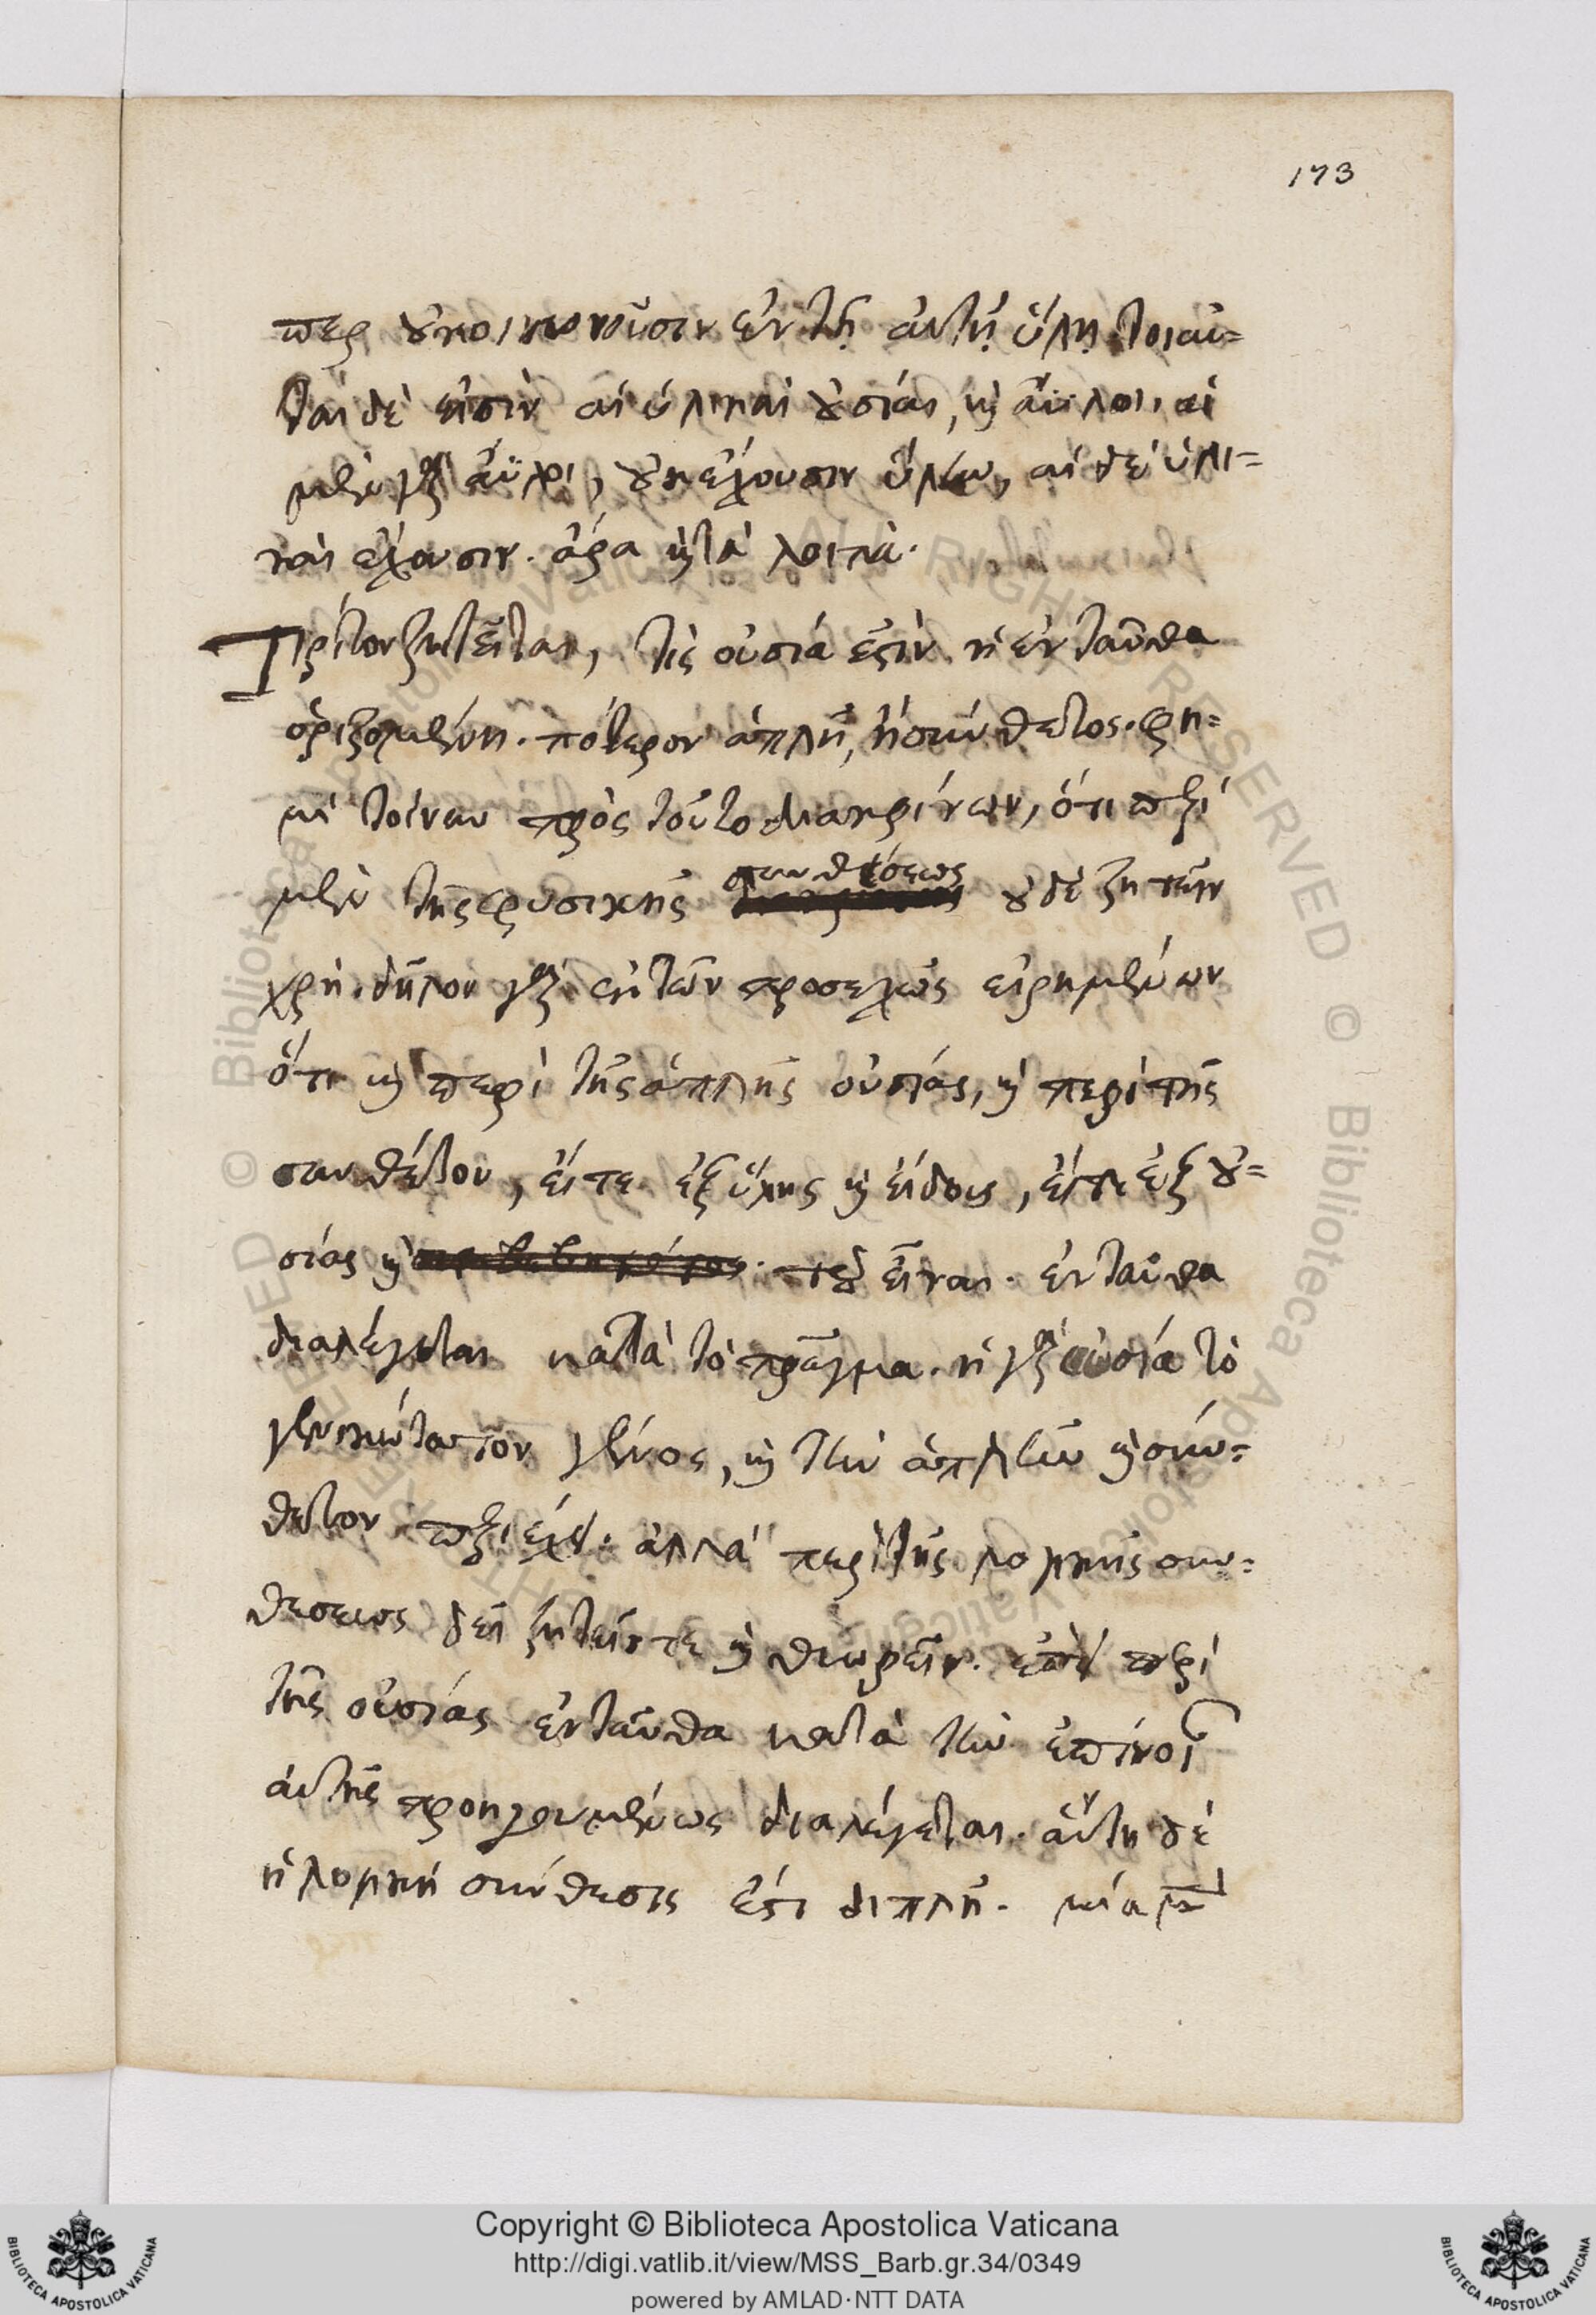 173
περ οὐ κοινωνοῦσιν ἐν τῇ αὐτῇ ὕλῃ. τοιαύ=
ται δὲ εἰσὶν αἱ ὑλικαὶ οὐσίαι, καὶ ἄϋλοι. αἱ
μὲν γὰρ ἄϋλοι, οὐκ ἔχουσιν ὕλην, αἱ δὲ ὑλι=
καὶ ἔχουσιν. ἄρα καὶ τὰ λοιπά.
Τρίτον ζητεῖται, τίς οὐσία ἐστὶν ἡ ἐνταῦθα
ὁριζομένη. πότερον ἁπλῆ, ἢ σύνθετος. φη=
μὶ τοίνυν πρὸς τοῦτο διακρίνων, ὅτι περὶ
μὲν τῆς φυσικῆς συνθέσεως οὐδὲ ζητεῖν
χρή. δῆλον γὰρ ἐκ τῶν προσεχῶς εἰρημένων
ὅτι καὶ περὶ τῆς ἁπλῆς οὐσίας, καὶ περὶ τῆς
συνθέτου, εἴτε ἐξ ὕλης καὶ εἴδους, εἴτε ἐξ οὐ=
σίας καὶ συμβεβηκότος. τοῦ εἶναι. ἐνταῦθα
διαλέγεται κατὰ τὸ πρᾶγμα. ἡ γὰρ οὐσία τὸ
γενικώτατον γένος, καὶ τὴν ἁπλῆν καὶ σύν=
θετον περιέχει. ἀλλὰ περὶ τῆς λογικῆς συν=
θέσεως δεῖ ζητεῖν τε καὶ θεωρεῖν. ἐπεὶ περὶ
τῆς οὐσίας ἐνταῦθα κατὰ τὴν ἐπίνοιαν
αὐτῆς προηγουμένως διαλέγεται. αὕτη δὲ
ἡ λογικὴ σύνθεσις ἐστὶ διπλῆ. μία μὲν
Copyright © Biblioteca Apostolica Vaticana
http://digi.vatlib.it/view/MSS_Barb.gr.34/0349
powered by AMLAD·NTT DATA